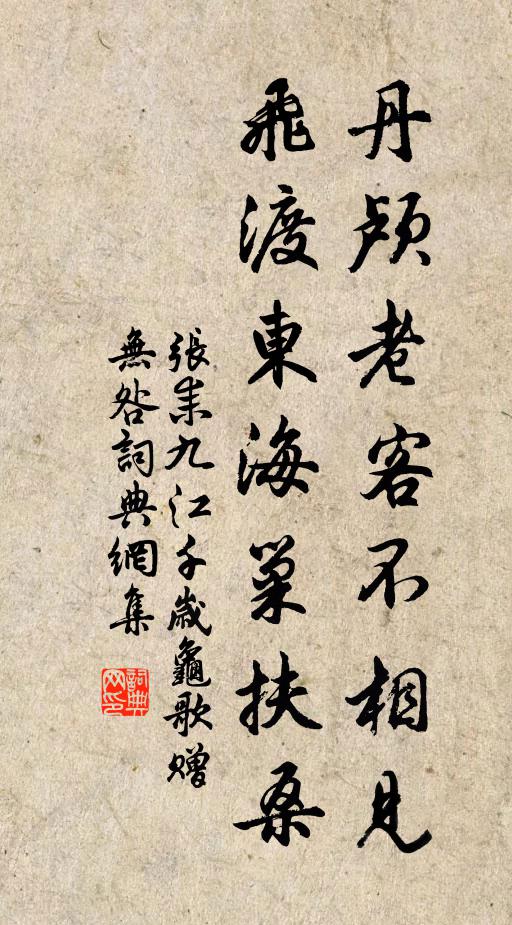 丹顱老客不相見
飛渡東海巢扶桑
張耒九江千歲龜歌贈
無咎詞典網集
詞典
网印